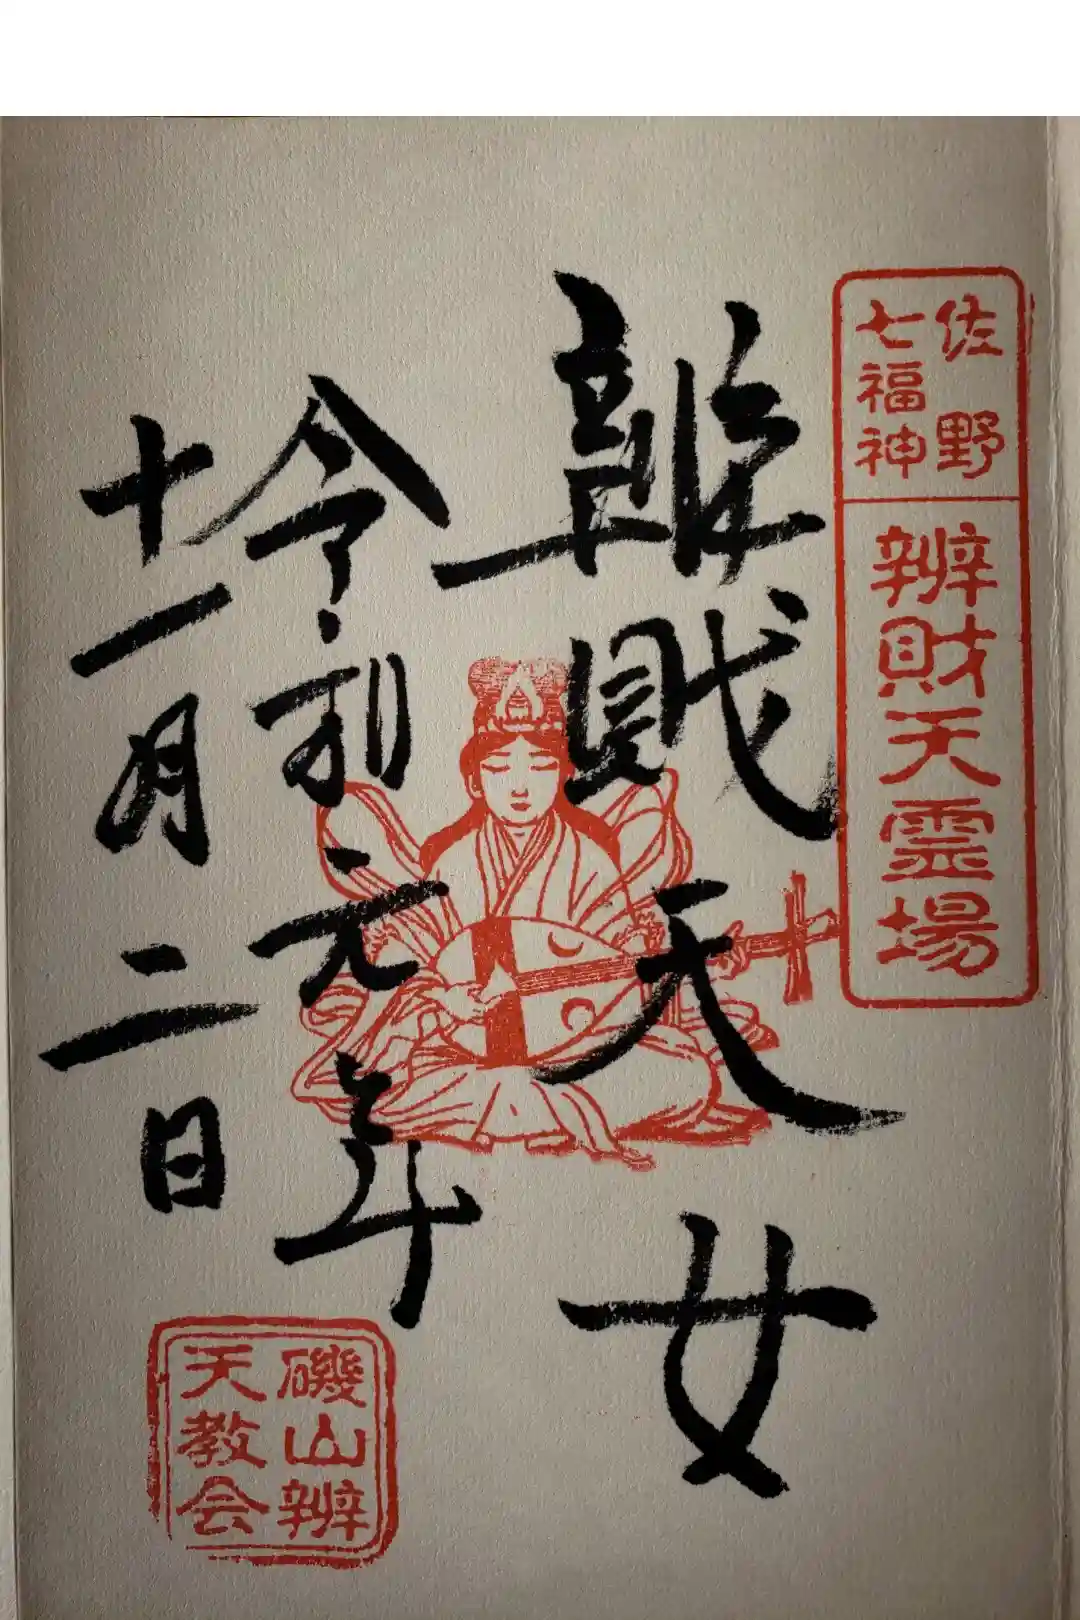 佐野
七福神
辨財天霊場
辨財天女
令和元年
十一月二日
磯山辨
天教会